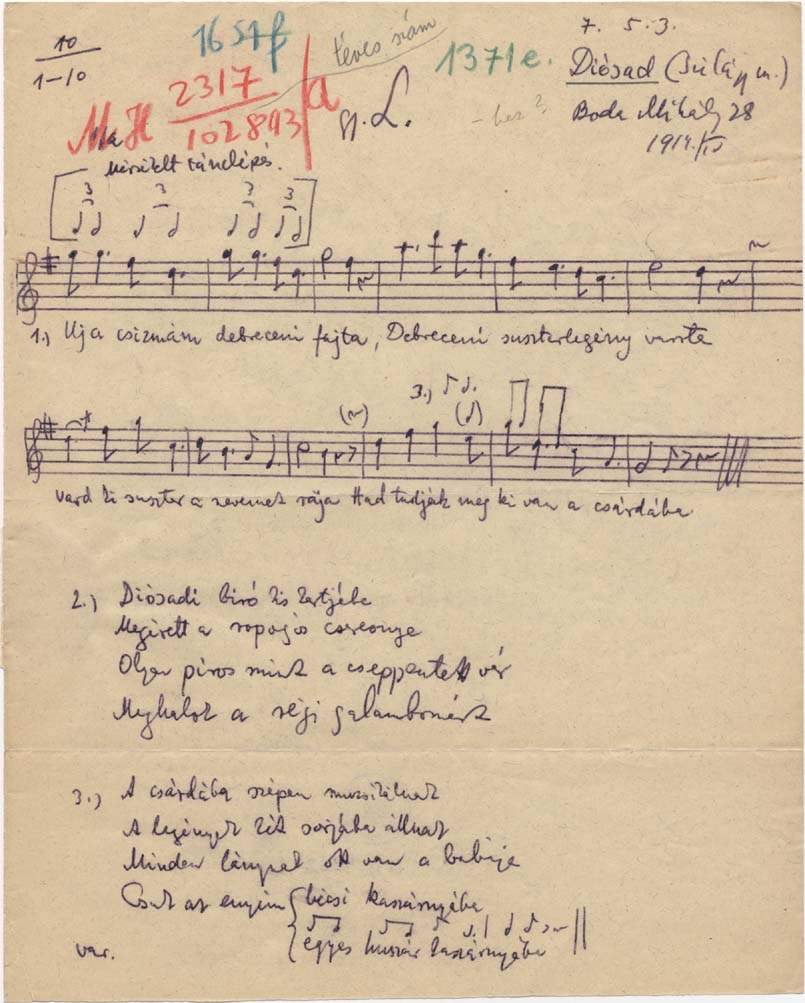 10
1-10
1654f
téves szám
1371e.
7. 5. 3.
M.H 2317/102843/a
gy. L.
- hez?
Diósad (Szilágy m.)
Boda Mihály 28
1914/IV
Mérsékelt tánclépés.
3 3 3 3
1.) Uj a csizmám debreceni fajta, Debreceni suszterlegény varrta
3.)
Vard ki suszter a nevemet rája Had tudják meg ki van a csárdába
2.) Diósadi biró kis kertjébe
Megirett a ropogós cseresnye
Olyan piros mint a cseppentett vér
Meghalok a régi galambomért
3.) A csárdába szépen muzsikálnak
A legények két sorjába állnak
Minden lánynak ott van a babája
Csak az enyim bécsi kaszárnyába
var. egyes huszár kaszárnyába